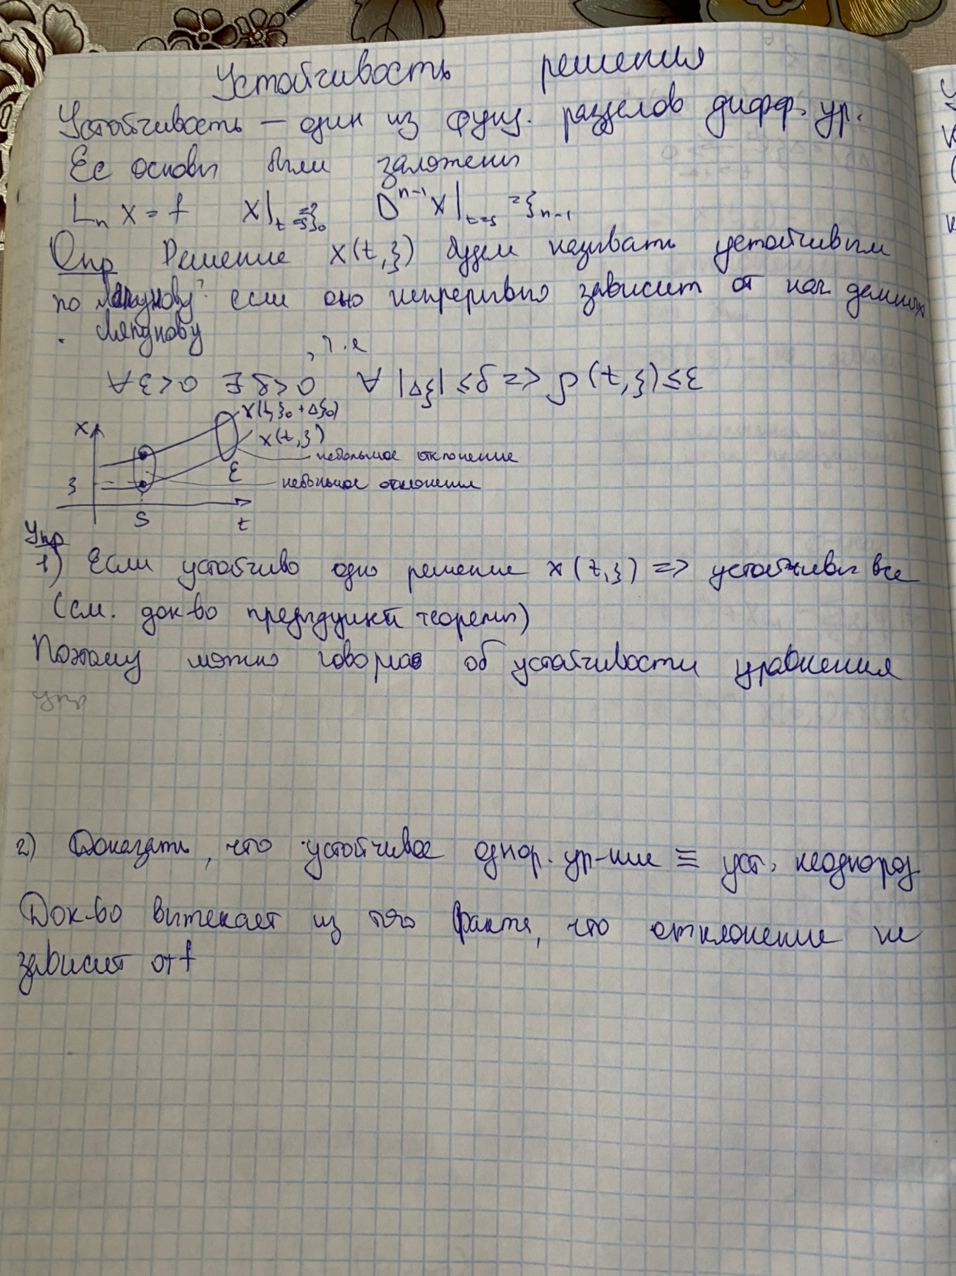 Устойчивость решения
Устойчивость — один из фунд. разделов дифф. ур.
Ее основы были заложены
Lₙ x = f x|ₜ₌ₛ = ξ₀ Dⁿ⁻¹x|ₜ₌ₛ = ξₙ₋₁
Опр Решение x(t,ξ) будем называть устойчивым
по Ляпунову если оно непрерывно зависит от нач данных
Ляпунову
, т.е
∀ε>0 ∃δ>0 ∀ |Δξ| ≤δ => (t,ξ)≤ε
x
x(t,ξ₀+Δξ₀)
x(t,ξ)
небольшое отклонение
ε
ξ
небольшое отклонение
s
t
Упр
1) Если устойчиво одно решение x(t,ξ) => устойчивы все
(см. док-во предыдущей теоремы)
Поэтому можно говорить об устойчивости уравнения
Упр
2) Доказать, что устойчивое однор. ур-ние ≡ уст. неоднород
Док-во вытекает из того факта, что отклонение не
зависит от f